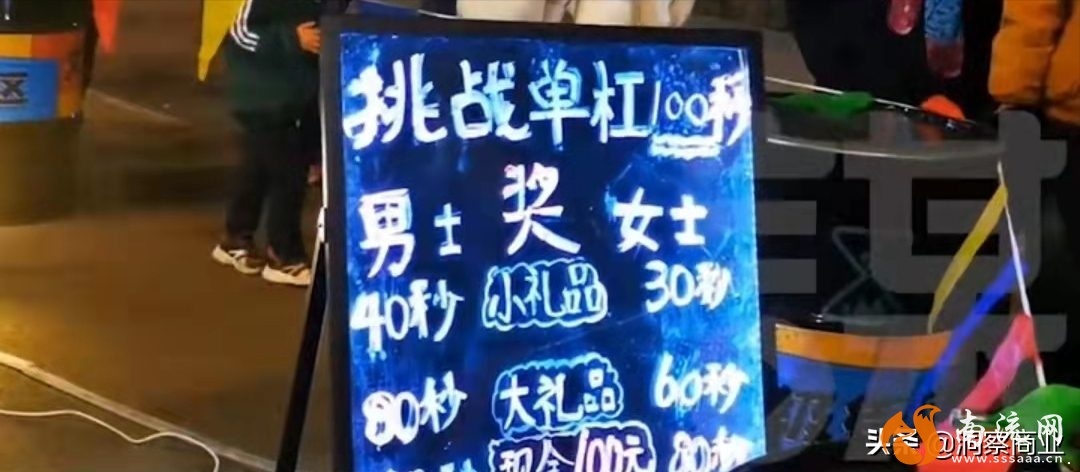 挑战单杠100秒
男士 奖 女士
40秒 小礼品 30秒
80秒 大礼品 60秒
现金100元
头条@洞察商业
南流网
www.sssaaa.cn